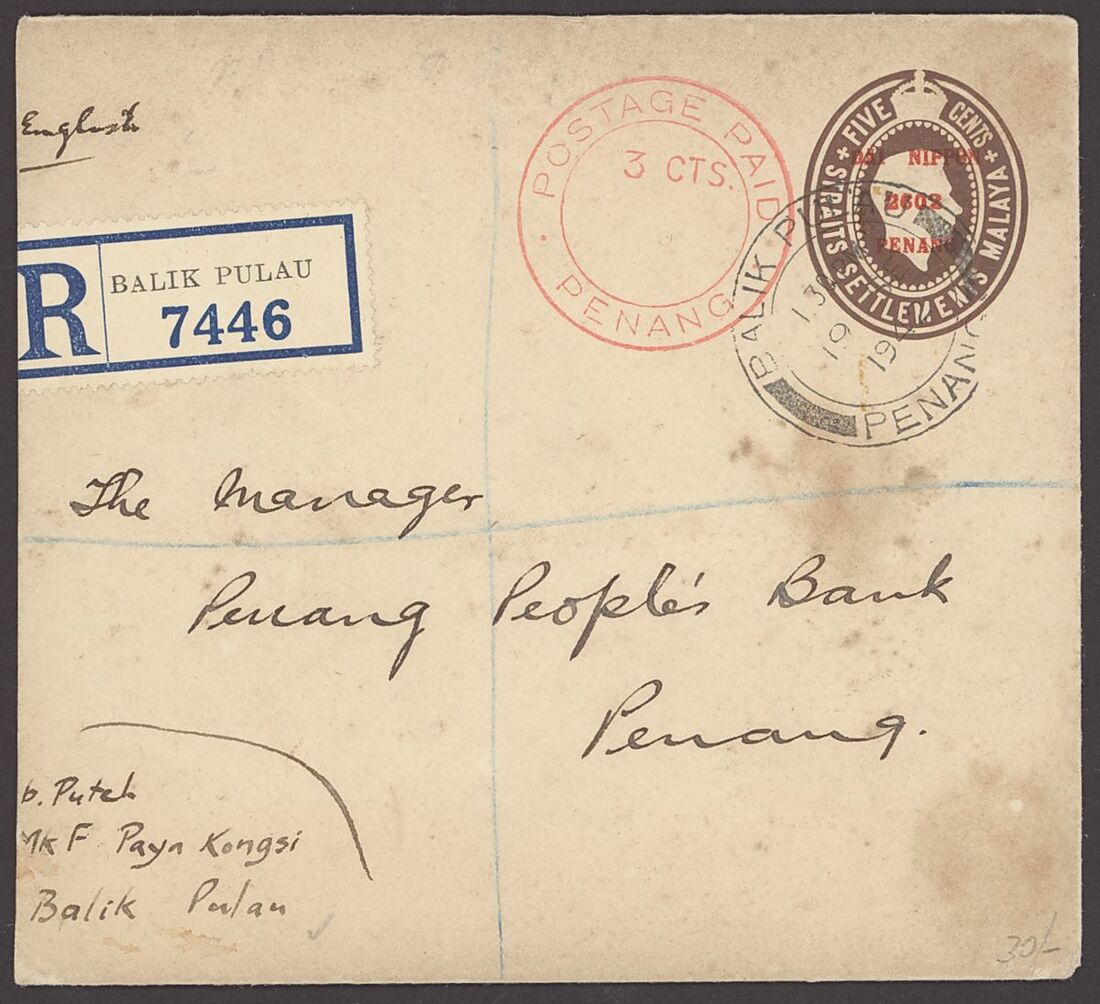 English
R
BALIK PULAU
7446
POSTAGE PAID
3 CTS.
PENANG
FIVE CENTS
STRAITS SETTLEMENTS MALAYA
DAI NIPPON
2602
PENANG
BALIK PULAU
1.30 PM
19
PENANG
The Manager
Penang People's Bank
Penang.
b. Puteh
Mk F Paya Kongsi
Balik Pulau
30/-